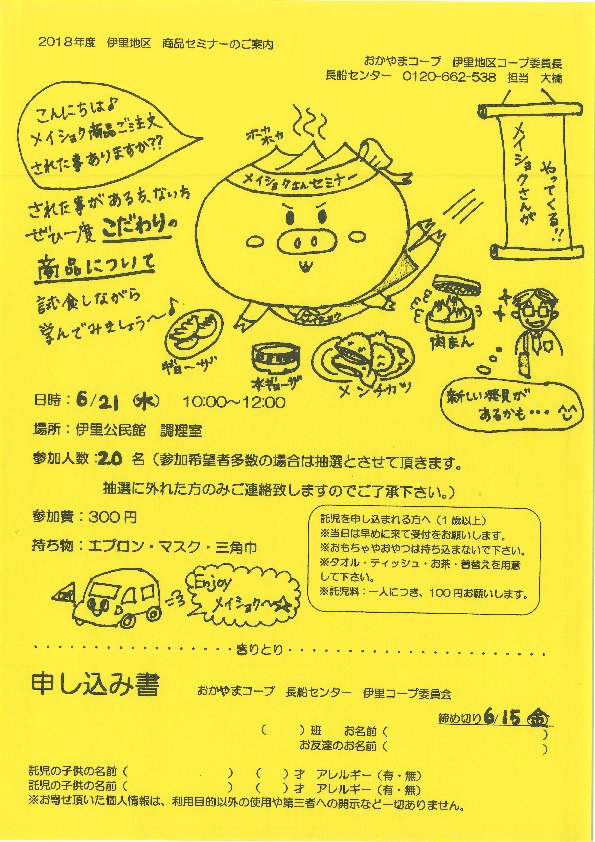 2018年度 伊里地区 商品セミナーのご案内
おかやまコープ 伊里地区コープ委員長
長船センター 0120-662-538 担当 大橋
こんにちは♪
メイショク商品ご注文
された事ありますか??
された事がある方、ない方
ぜひ一度こだわりの
商品について
試食しながら
学んでみましょう〜♪
ホカホカ
メイショクさんセミナー
メイショク
メイショクさんが
やってくる!!
ギョーザ
水ギョーザ
メンチカツ
肉まん
新しい発見が
あるかも・・・^^
日時:6/21(木) 10:00〜12:00
場所:伊里公民館 調理室
参加人数:20名(参加希望者多数の場合は抽選とさせて頂きます。
抽選に外れた方のみご連絡致しますのでご了承下さい。)
参加費:300円
持ち物:エプロン・マスク・三角巾
託児を申し込まれる方へ(1歳以上)
※当日は早めに来て受付をお願いします。
※おもちゃやおやつは持ち込まないで下さい。
※タオル・ティッシュ・お茶・着替えを用意
して下さい。
※託児料:一人につき、100円お願いします。
Enjoy
メイショク〜☆
きりとり
申し込み書 おかやまコープ 長船センター 伊里コープ委員会
締め切り6/15(金)
( )班 お名前( )
お友達のお名前( )
託児の子供の名前( ) ( )才 アレルギー(有・無)
託児の子供の名前( ) ( )才 アレルギー(有・無)
※お寄せ頂いた個人情報は、利用目的以外の使用や第三者への開示など一切ありません。